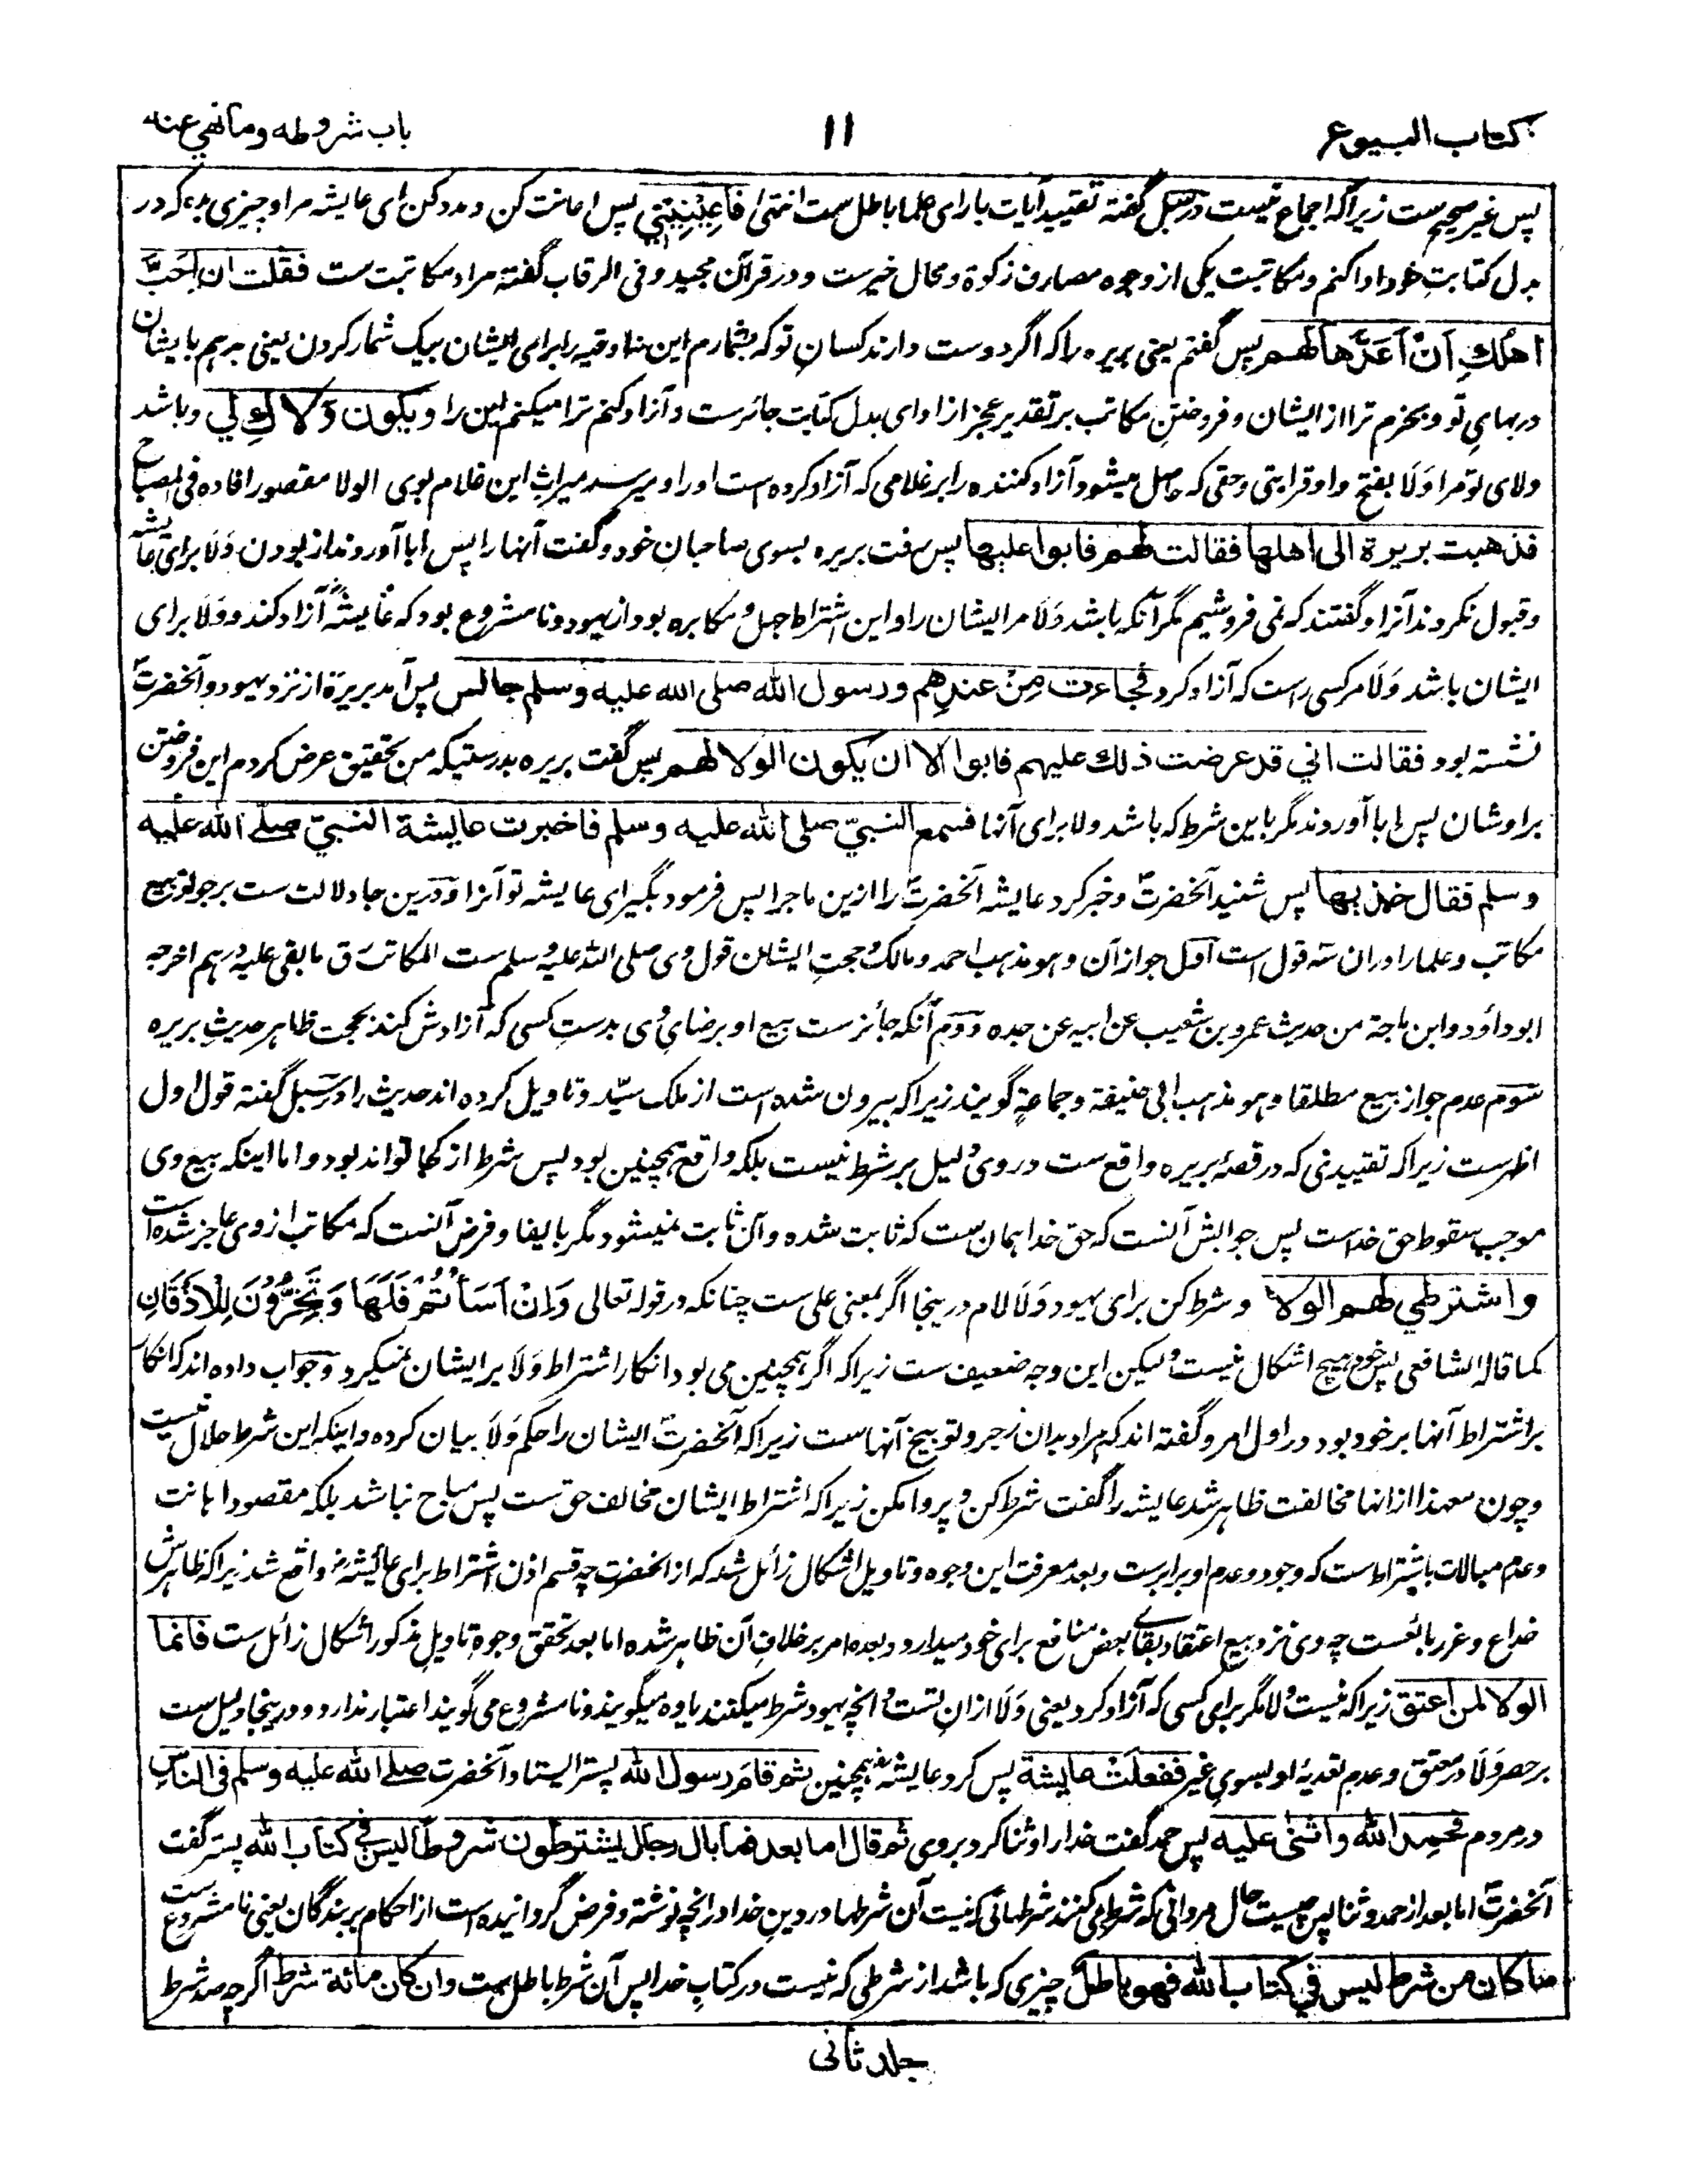 کتاب البیوع
۱۱
باب شروطه وما نهي عنه
پس غیر صحیح ست زیراکه اجماع نیست در سبل گفته تقیید آیات بارای علما باطل ست انتهی فَأَعِيْنِيْنِيْ پس اعانت کن و مدد کن ای عایشه مرا و چیزی بده که در
بدل کتابتِ خود ادا کنم و مکاتبت یکی از وجوه مصارف زکوة و محال خیرست و در قرآن مجید و فی الرقاب گفته مراد مکاتبت ست فقلت ان اَحَبَّ
اهلكِ اَنْ اَعَدَّها لهم پس گفتم یعنی بریره را که اگر دوست دارند کسانِ تو که بشمارم این نه اوقیه را برای ایشان بیک شمار کردن یعنی بدهم بایشان
در بهایِ تو و بخرم ترا از ایشان و فروختنِ مکاتب بر تقدیر عجز از ادای بدل کتابت جائزست و آزاد کنم ترا میکنم این را ويكون وَلاؤكِ لي و باشد
ولای تو مرا وَلَا بفتح واو قرابتی و حقی که حاصل میشود آزاد کننده را بر غلامی که آزاد کرده است او را و میرسد میراثِ این غلام بوی الولا مقصور افاده فی المصباح
فذهبت بريرة الى اهلها فقالت لهم فابوا عليها پس رفت بریره بسوی صاحبانِ خود و گفت آنها را پس ابا آوردند از بودن وَلَا برای عایشه
و قبول نکردند آنرا و گفتند که نمی فروشیم مگر آنکه باشد وَلَا مر ایشان را و این اشتراط جهل و مکابره بود از یهود و نامشروع بود که عایشه آزاد کند و وَلَا برای
ایشان باشد وَلَا مر کسی راست که آزاد کرد فجاءت مِنْ عندِهم ورسول الله صلى الله عليه وسلم جالس پس آمد بریرة از نزد یهود و آنحضرت
نشسته بود فقالت اني قد عرضت ذلك عليهم فابوا الا ان يكون الولا لهم پس گفت بریره بدرستیکه من بتحقیق عرض کردم این فروختن
براوشان پس ابا آوردند مگر باین شرط که باشد ولا برای آنها فسمع النبيّ صلى الله عليه وسلم فاخبرت عايشة النبيّ صلے الله عليه
وسلم فقال خذيها پس شنید آنحضرت و خبر کرد عایشه آنحضرت را ازین ماجرا پس فرمود بگیر ای عایشه تو آنرا و درین جا دلالت ست بر جواز بیع
مکاتب و علما را دران سه قول است اول جواز آن و هو مذهب احمد و مالک و حجتِ ایشان قول وی صلی الله علیه و سلم ست المکاتب ق ما بقی علیه درهم اخرجه
ابو داؤد و ابن ماجة من حدیث عمرو بن شعیب عن ابیه عن جده دوم آنکه جائزست بیع او برضایِ وی بدستِ کسی که آزادش کند بحجت ظاهر حدیثِ بریره
سوم عدم جواز بیع مطلقا و هو مذهب ابی حنیفة و جماعةٍ گویند زیراکه بیرون شده است از ملک سیّد و تاویل کرده اند حدیث را در سبل گفته قول اول
اظهرست زیراکه تقییدنی که در قصهٔ بریره واقع ست در وی دلیل بر شرط نیست بلکه واقع همچنین بود پس شرط از کجا تواند بود و اما اینکه بیع وی
موجب سقوط حق خداست پس جوابش آنست که حق خدا همان ست که ثابت شده و آن ثابت نمیشود مگر بایفا و فرض آنست که مکاتب از وی عاجز شده است
واشترطي لهم الولا و شرط کن برای یهود وَلَا لام درینجا اگر بمعنی علی ست چنانکه در قوله تعالی وَاِنْ اَسَأْتُمْ فَلَهَا وَيَخِرُّوْنَ لِلْاَذْقَانِ
کما قاله الشافعی پس خود هیچ اشکال نیست و لیکن این وجه ضعیف ست زیراکه اگر همچنین می بود انکار اشتراط وَلَا بر ایشان نمیکرد و جواب داده اند که انکار
بر اشتراط آنها بر خود بود در اول امر و گفته اند که مراد بدان زجر و توبیخ آنهاست زیراکه آنحضرت ایشان را حکم وَلَا بیان کرده و اینکه این شرط حلال نیست
و چون معهذا از آنها مخالفت ظاهر شد عایشه را گفت شرط کن و پروا مکن زیراکه اشتراط ایشان مخالف حق ست پس مباح نباشد بلکه مقصود اهانت
و عدم مبالات باشتراط ست که وجود و عدم او برابرست و بعد معرفت این وجوه و تاویل اشکال زائل شد که از آنحضرت چه قسم اذن اشتراط برای عائیشه واقع شد زیراکه ظاهرش
خداع و غرر بائعست چه وی نزد بیع اعتقاد بقاے بعض منافع برای خود میدارد و بعده امر بر خلافِ آن ظاهر شده اما بعد تحقق وجوه تاویلِ مذکور اشکال زائل ست فانما
الولا لمن اعتق زیراکه نیست ولا مگر برای کسی که آزاد کرد یعنی وَلَا ازانِ تست و انچه یهود شرط میکنند یاوه میگویند و نامشروع می گویند اعتبار ندارد و درینجا دلیل ست
بر حصر وَلَا در معتق و عدم تعدیهٔ او بسویِ غیر ففعلَتْ عايشة پس کرد عایشه همچنین ثم قامَ رسول الله پستر ایستاد آنحضرت صلے الله عليه وسلم في الناسِ
در مردم فحمِد الله واثنى عليه پس حمد گفت خدا را و ثنا کرد بروی ثم قال اما بعد فما بال رجال يشترطون شروطًا ليس في كتاب الله پستر گفت
آنحضرت اما بعد از حمد و ثنا پس چیست حال مردانی که شرط می کنند شرطهائی که نیست آن شرطها در دینِ خدا در انچه نوشته و فرض گردانیده است از احکام بر بندگان یعنی نامشروع ست
ما كان من شرط ليس في كتاب الله فهو باطلٌ چیزی که باشد از شرطی که نیست در کتابِ خدا پس آن شرط باطل ست وان كان مائة شرط اگر چه صد شرط
جلد ثانی